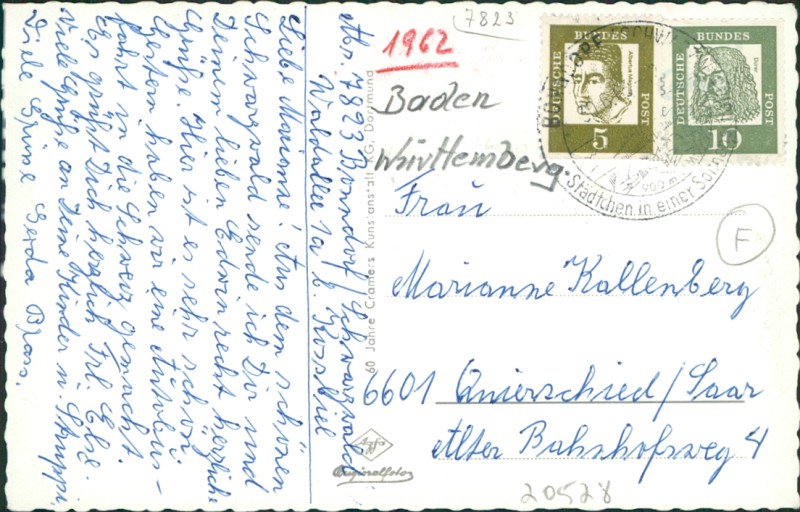 Abs. 7823 Bonndorf/Schwarzwald
Waldallee 1a b. Rossbiel
Liebe Marianne! Aus dem schönen
Schwarzwald sende ich Dir und
Deinem lieben Edwin recht herzliche
Grüße. Hier ist es sehr schön.
Gestern haben wir eine Autobus-
fahrt in die Schweiz gemacht.
Es grüßt Dich herzlich Frl. Else.
Viele Grüße an Deine Kinder u. Struppi
Viele Grüße Gerda Brass.
7823
1962
Baden
Württemberg.
60 Jahre Cramers Kunstanstalt KG, Dortmund
Agfa
Originalfoto
DEUTSCHE
BUNDES
POST
5
DEUTSCHE
BUNDES
POST
Dürer
10
900 m
Städtchen in einer
F
Frau
Marianne Kallenberg
6601 Quierschied/Saar
Alter Bahnhofsweg 4
20528